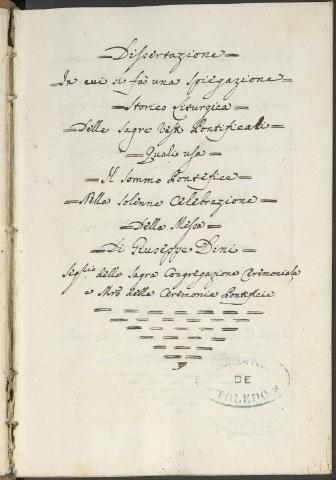 Dissertazione
In cui si fà una Spiegazione
Storico Liturgica
delle Sagre Vesti Pontificali
Quali usa
Il Sommo Pontefice
Nella Solenne Celebrazione
Della Messa
Di Giuseppe Dini
della Sagra Congregazione Ceremoniale
e Mro delle Ceremonie Pontificie
DE
TOLEDO